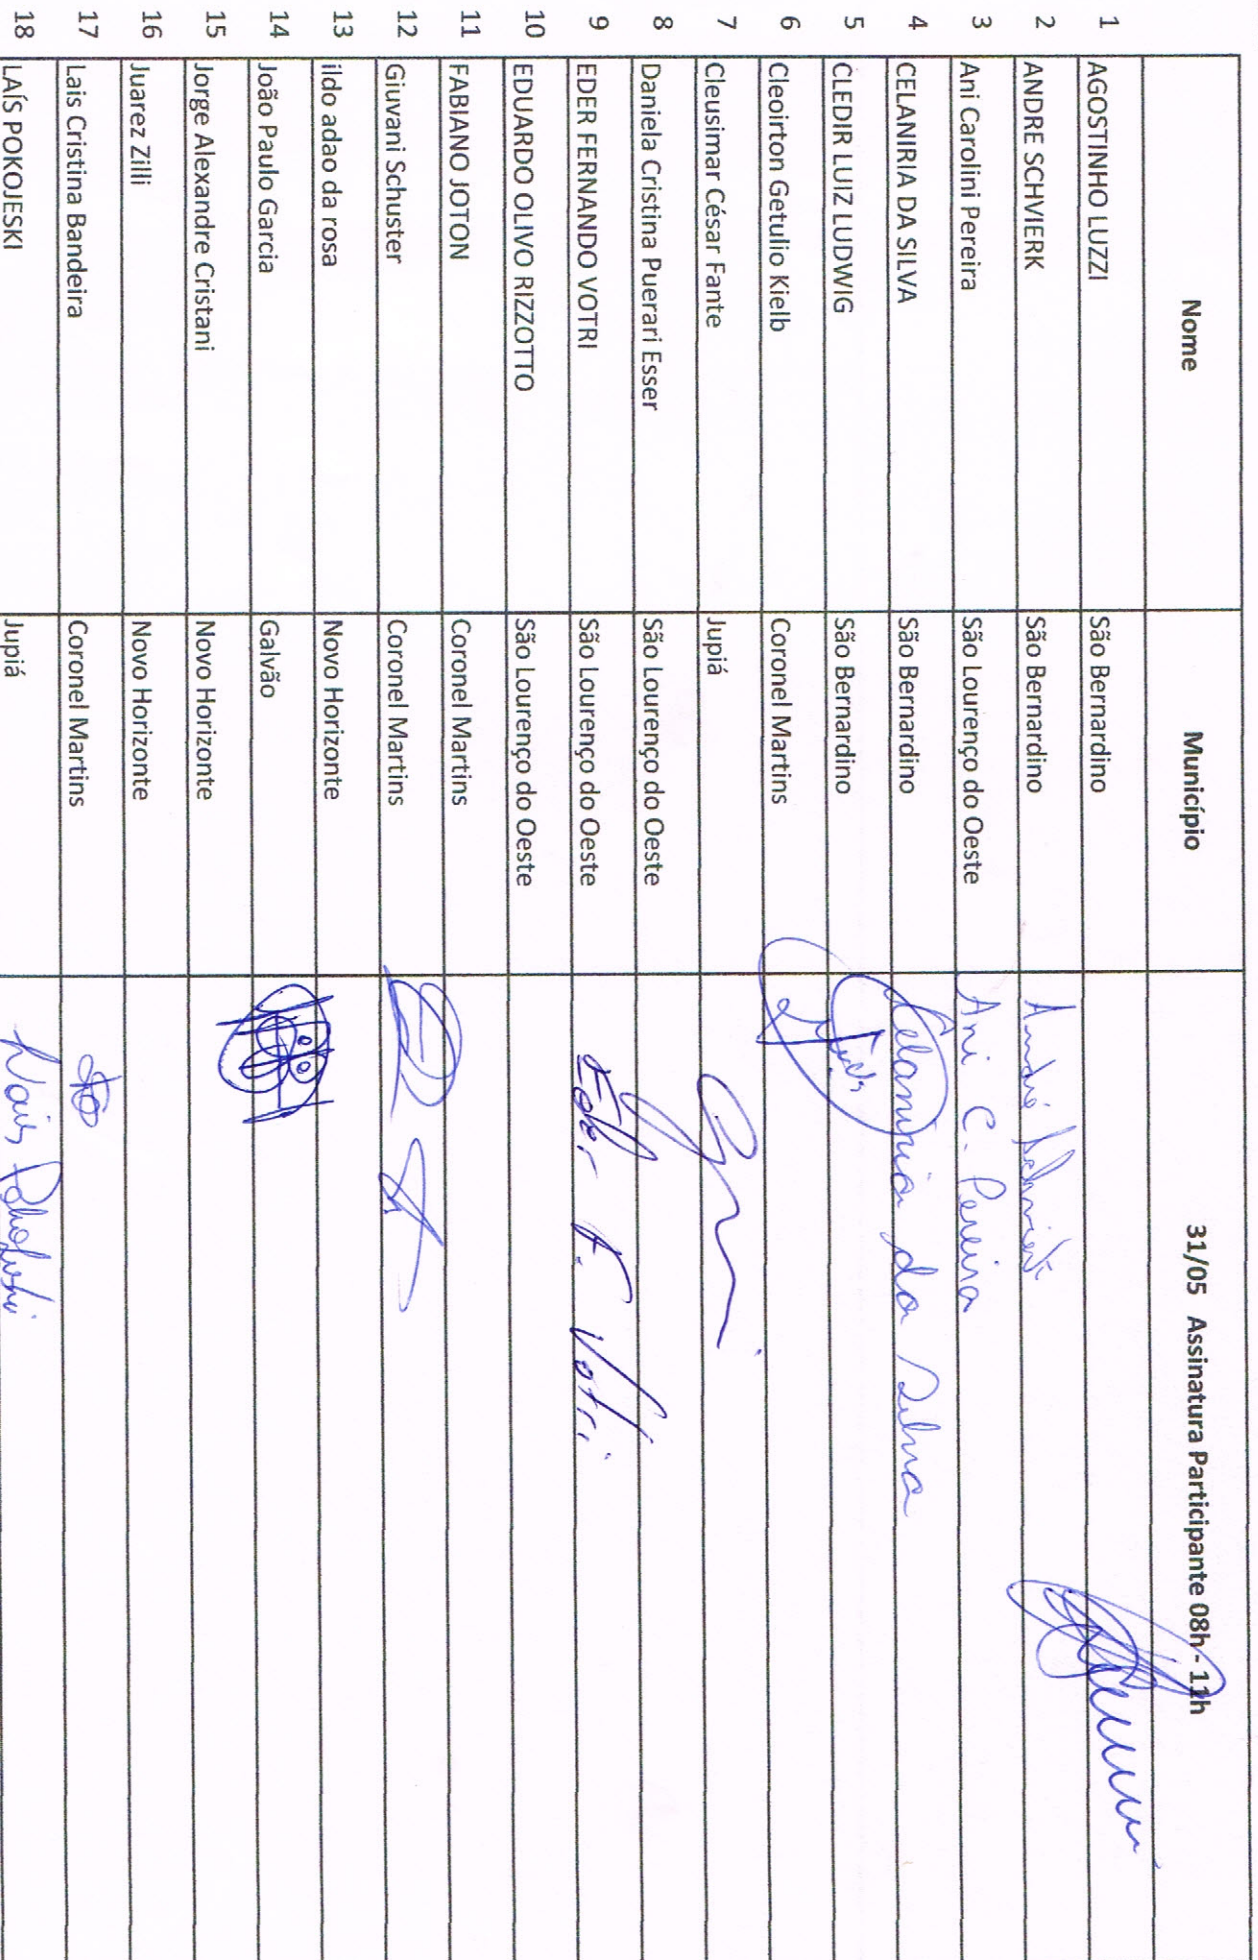 Nome Município 31/05 Assinatura Participante 08h - 11h
1 AGOSTINHO LUZZI São Bernardino
2 ANDRE SCHVIERK São Bernardino André
3 Ani Carolini Pereira São Lourenço do Oeste Ani C. Pereira
4 CELANIRIA DA SILVA São Bernardino Celaniria da Silva
5 CLEDIR LUIZ LUDWIG São Bernardino
6 Cleoirton Getulio Kielb Coronel Martins
7 Cleusimar César Fante Jupiá
8 Daniela Cristina Puerari Esser São Lourenço do Oeste
9 EDER FERNANDO VOTRI São Lourenço do Oeste Eder F. Votri
10 EDUARDO OLIVO RIZZOTTO São Lourenço do Oeste
11 FABIANO JOTON Coronel Martins
12 Giuvani Schuster Coronel Martins
13 ildo adao da rosa Novo Horizonte
14 João Paulo Garcia Galvão
15 Jorge Alexandre Cristani Novo Horizonte
16 Juarez Zilli Novo Horizonte
17 Lais Cristina Bandeira Coronel Martins
18 LAÍS POKOJESKI Jupiá Laís Pokojeski